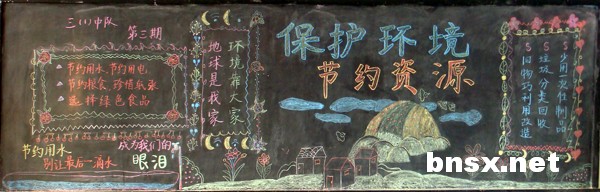 三(1)中队
第三期
节约用水、节约用电
节约粮食、珍惜纸张
选择绿色食品
节约用水
别让最后一滴水
成为我们的
眼泪
环境靠大家
地球是我家
保护环境
节约资源
5少用一次性制品
5垃圾分类回收
5旧物巧利用改造
bnsx.net